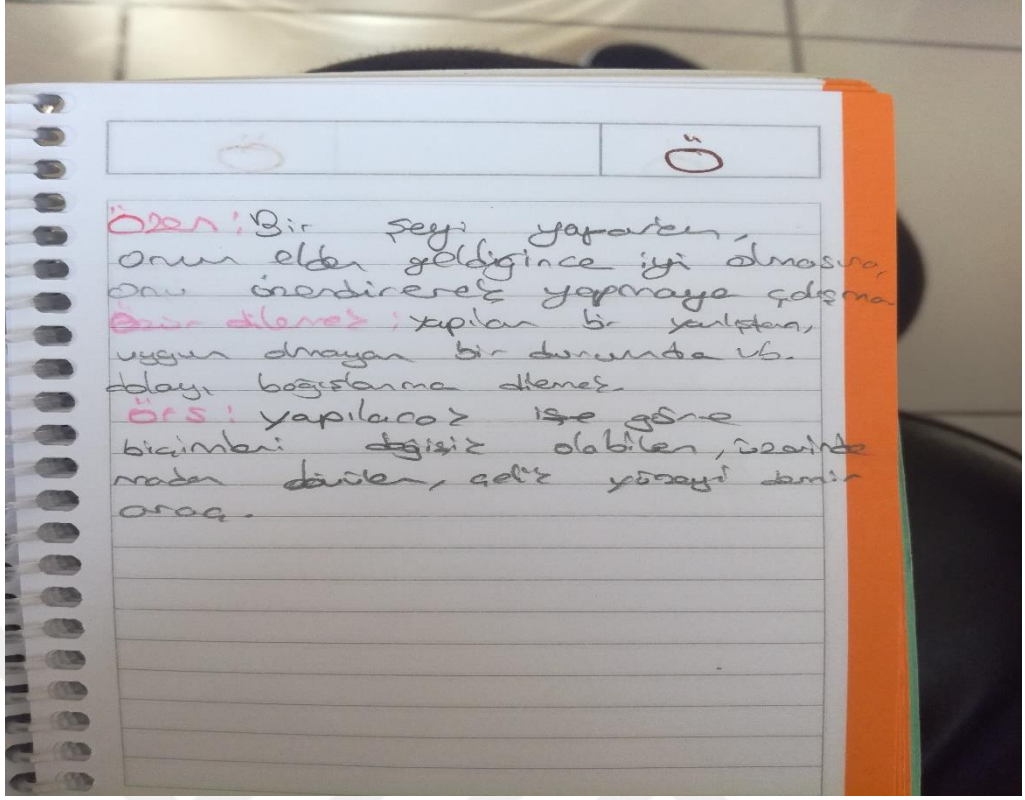 Ö Ö
Özen: Bir şeyi yaparken,
onun elden geldiğince iyi olmasına,
onu özendirerek yapmaya çalışma
Özür dilemek: yapılan bir yanlıştan,
uygun olmayan bir durumda vb.
dolayı bağışlanma dilemek.
Örs: yapılacak işe göre
biçimleri değişik olabilen, üzerinde
maden dövülen, çelik yüzeyi demir
araç.